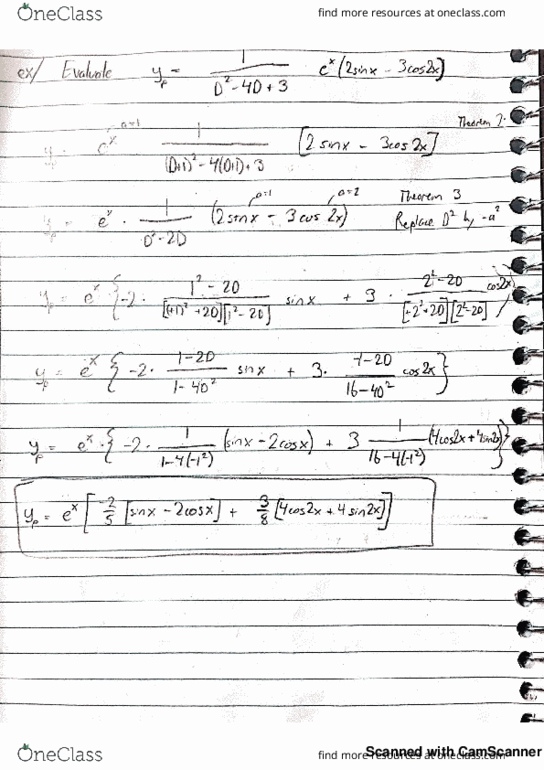 OneClass find more resources at oneclass.com
ex/ Evaluate y_p = 1/(D² - 4D + 3) e^x (2sinx - 3cos2x)
Theorem 2.
y_p = e^x (a=1) 1/((D+1)² - 4(D+1) + 3) [2 sinx - 3cos 2x]
a=1 a=2 Theorem 3
y_p = e^x · 1/(D² - 2D) (2sinx - 3 cos 2x) Replace D² by -a²
y_p = e^x {-2 · (1² - 2D)/([(+1)² + 2D][1² - 2D]) sinx + 3 · (2² - 2D)/([+2² + 2D][2² - 2D]) cos2x}
y_p = e^x {-2 · (1 - 2D)/(1 - 4D²) sinx + 3 · (4 - 2D)/(16 - 4D²) cos2x}
y_p = e^x · {-2 · 1/(1 - 4(-1²)) (sinx - 2cosx) + 3 1/(16 - 4(-1²)) (4cos2x + 4sin2x)}
y_p = e^x [-2/5 [sinx - 2cosx] + 3/8 [4cos2x + 4 sin2x]]
OneClass find more resources at oneclass.com
Scanned with CamScanner